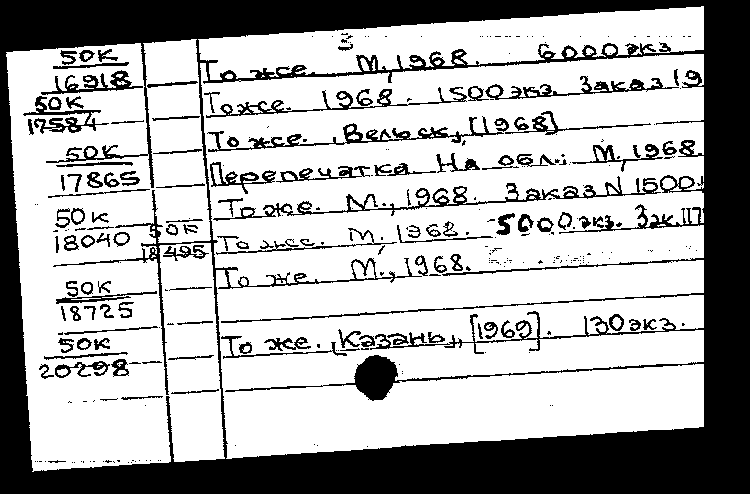 3
50К
16918 То же. М., 1968. 6000 экз
50К
17584 То же. 1968. 1500 экз. Заказ 19
То же. [Вельск], [1968]
50К
17865 Перепечатка. На обл.: М., 1968.
50К То же. М., 1968. Заказ N 1500.
18040 50К
18495 То же. М., 1968. 5000 экз. Зак. 117
50К То же. М., 1968.
18725
50К
20298 То же. [Казань], [1969]. 130 экз.